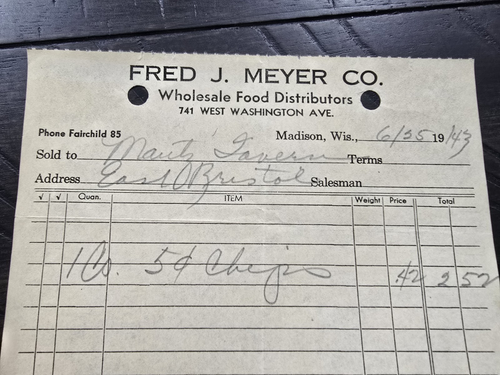 FRED J. MEYER CO.
Wholesale Food Distributors
741 WEST WASHINGTON AVE.
Phone Fairchild 85
Madison, Wis., 6/25 19/43
Sold to Mautz Tavern Terms
Address East Bristol Salesman
√ √ Quan. ITEM Weight Price √ Total
5¢ Chips .42 2 52